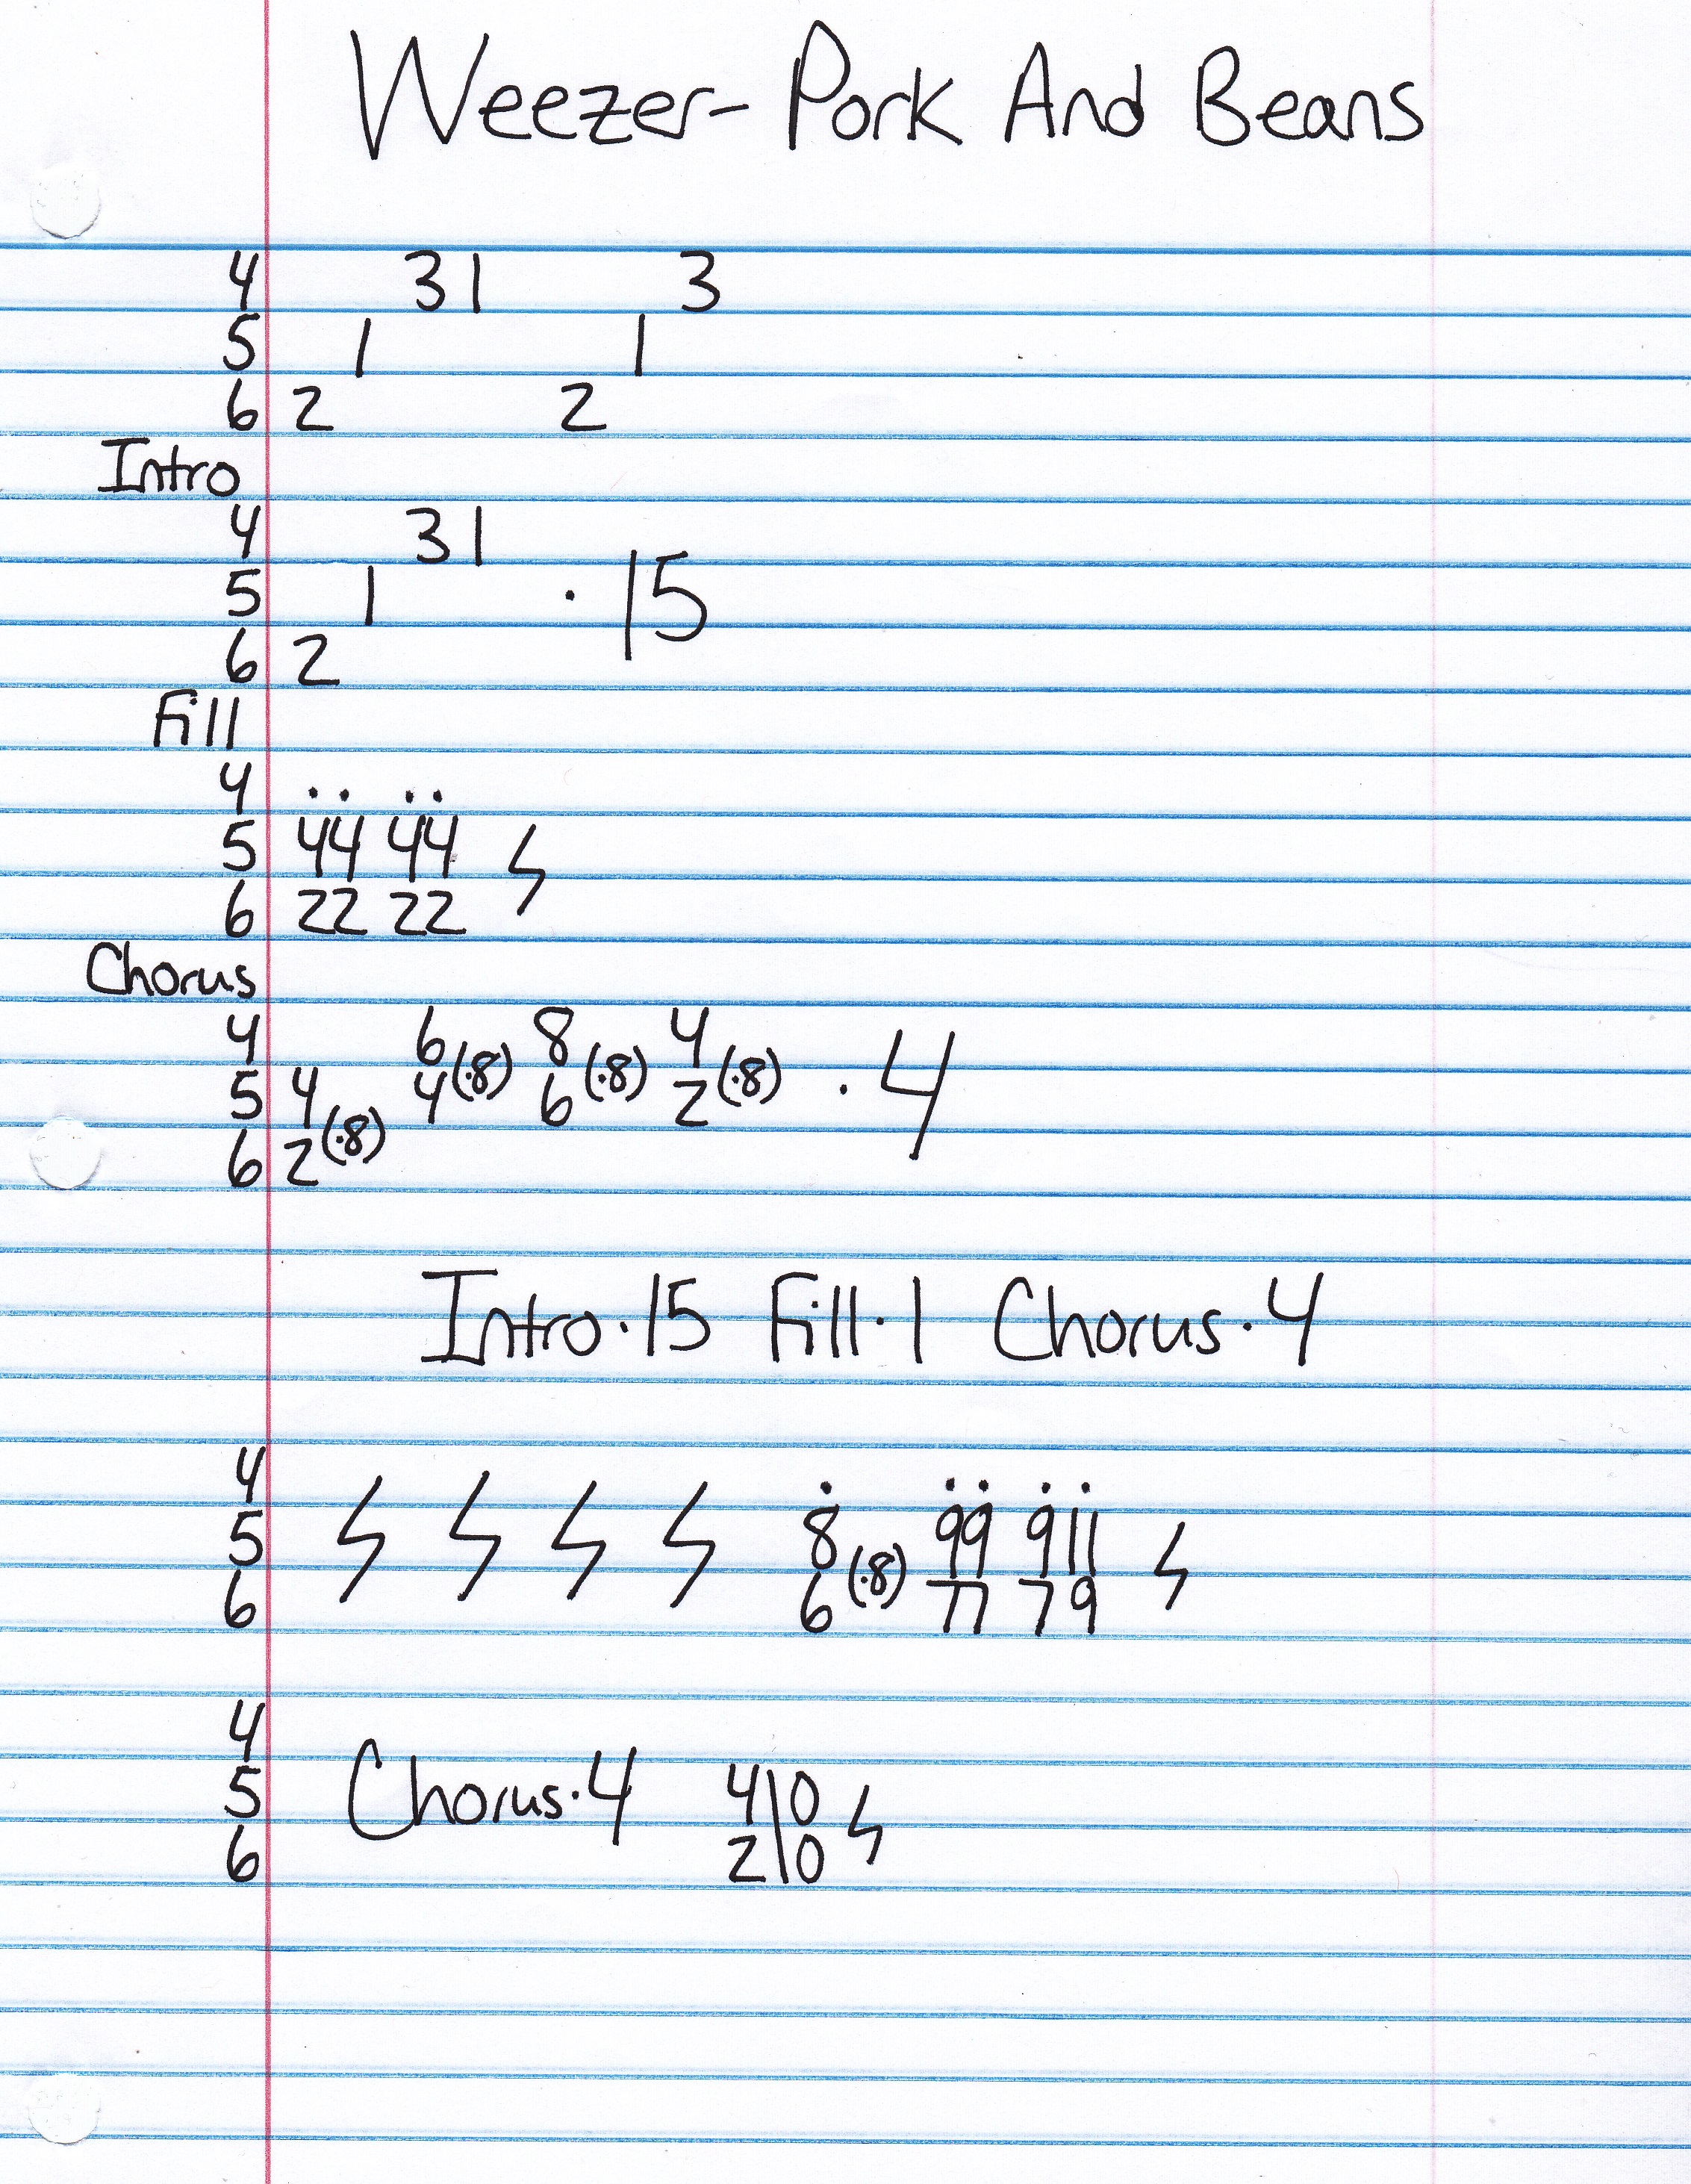 Weezer- Pork And Beans
4 31 3
5 1 1
6 2 2
Intro
4 31
5 1 · 15
6 2
Fill
4 ·· ··
5 44 44
6 22 22
Chorus
4 6(·8) 8(·8) 4(·8) · 4
5 4 4 6 2
6 2(·8)
Intro·15 Fill·1 Chorus·4
4 · ·· ··
5 8 99 911
6 6(·8) 77 79
4
5 Chorus·4 4 10
6 2 10